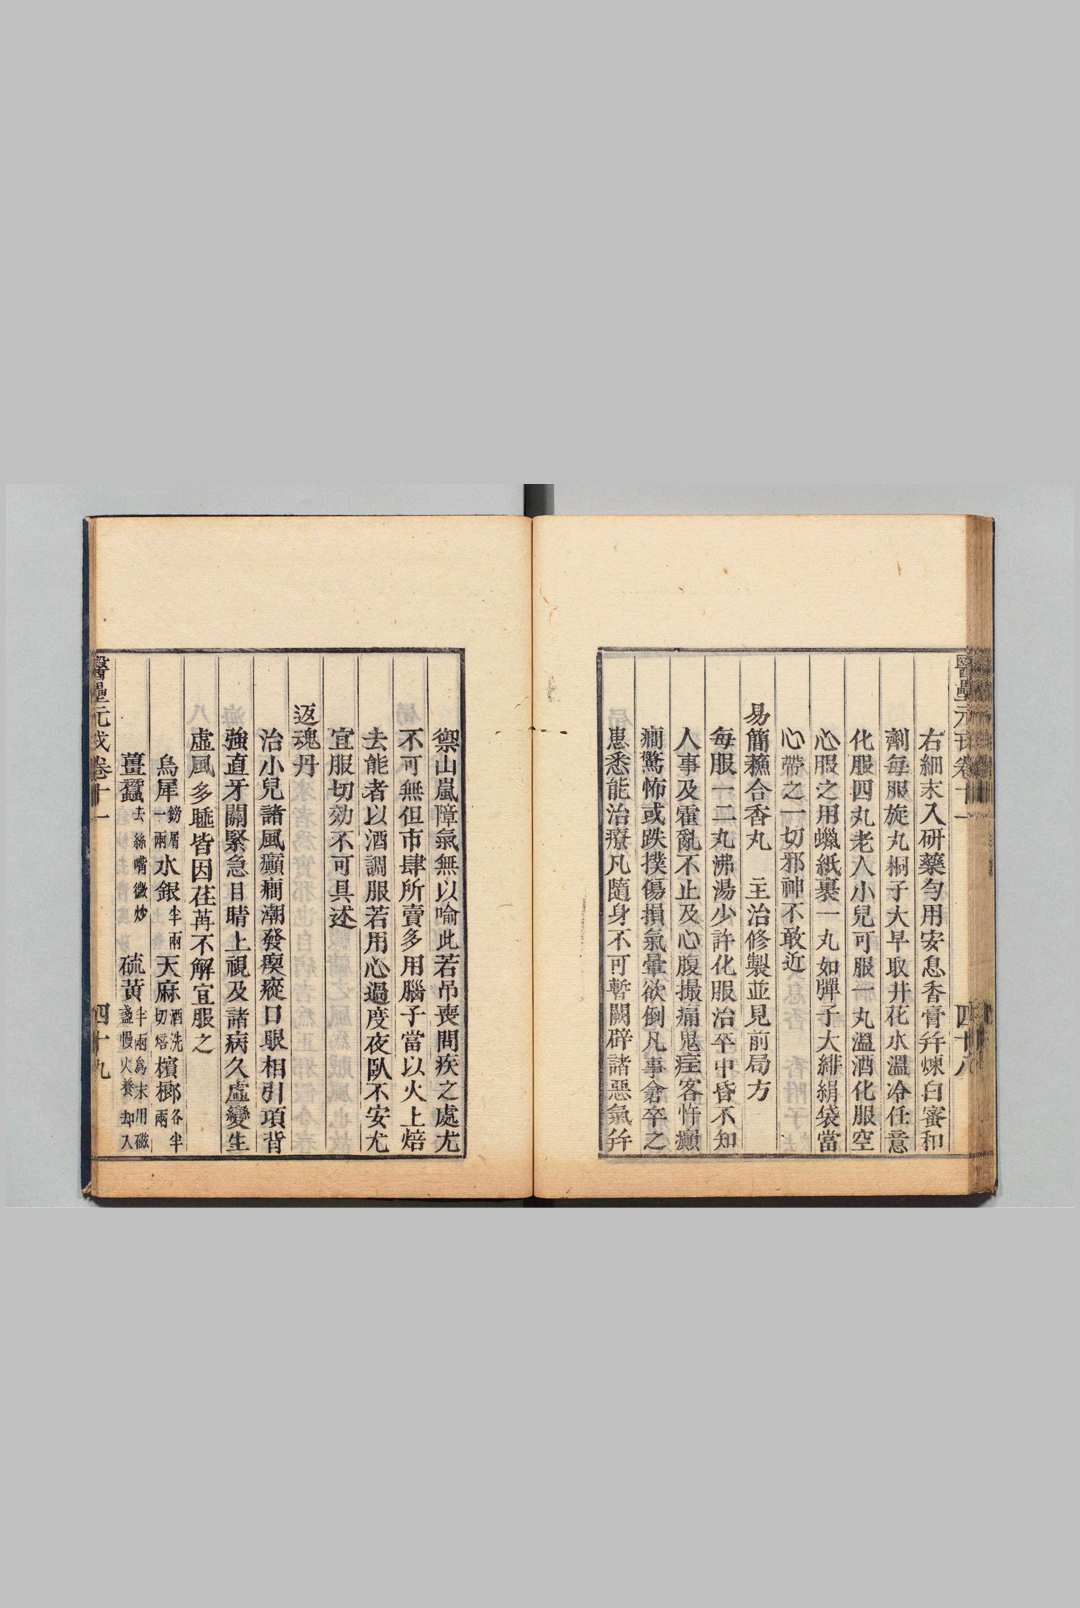 右細末入研藥勻用安息香膏并煉白蜜和
劑每服旋丸桐子大早取井花水溫冷任意
化服四丸老人小兒可服一丸溫酒化服空
心服之用蠟紙裹一丸如彈子大緋絹袋當
心帶之一切邪神不敢近
易簡蘓合香丸　主治修製並見前局方
每服一二丸沸湯少許化服治卒中昏不知
人事及霍亂不止及心腹撮痛鬼疰客忤癲
癇驚怖或跌撲傷損氣暈欲倒凡事倉卒之
患悉能治療凡隨身不可暫闕辟諸惡氣并
四十八
禦山嵐障氣無以喻此若吊喪問疾之處尤
不可無但市肆所賣多用腦子當以火上焙
去能者以酒調服若用心過度夜臥不安尤
宜服切効不可具述
返魂丹
治小兒諸風癲癇潮發瘈瘲口眼相引項背
強直牙關緊急目睛上視及諸病久虛變生
虛風多睡皆因荏苒不解宜服之
烏犀鎊屑一兩水銀半兩天麻酒洗切焙檳榔各半兩
薑蠶去絲嘴微炒硫黃半兩為末用磁盞慢火養却入
醫壘元戎卷十一
四十九